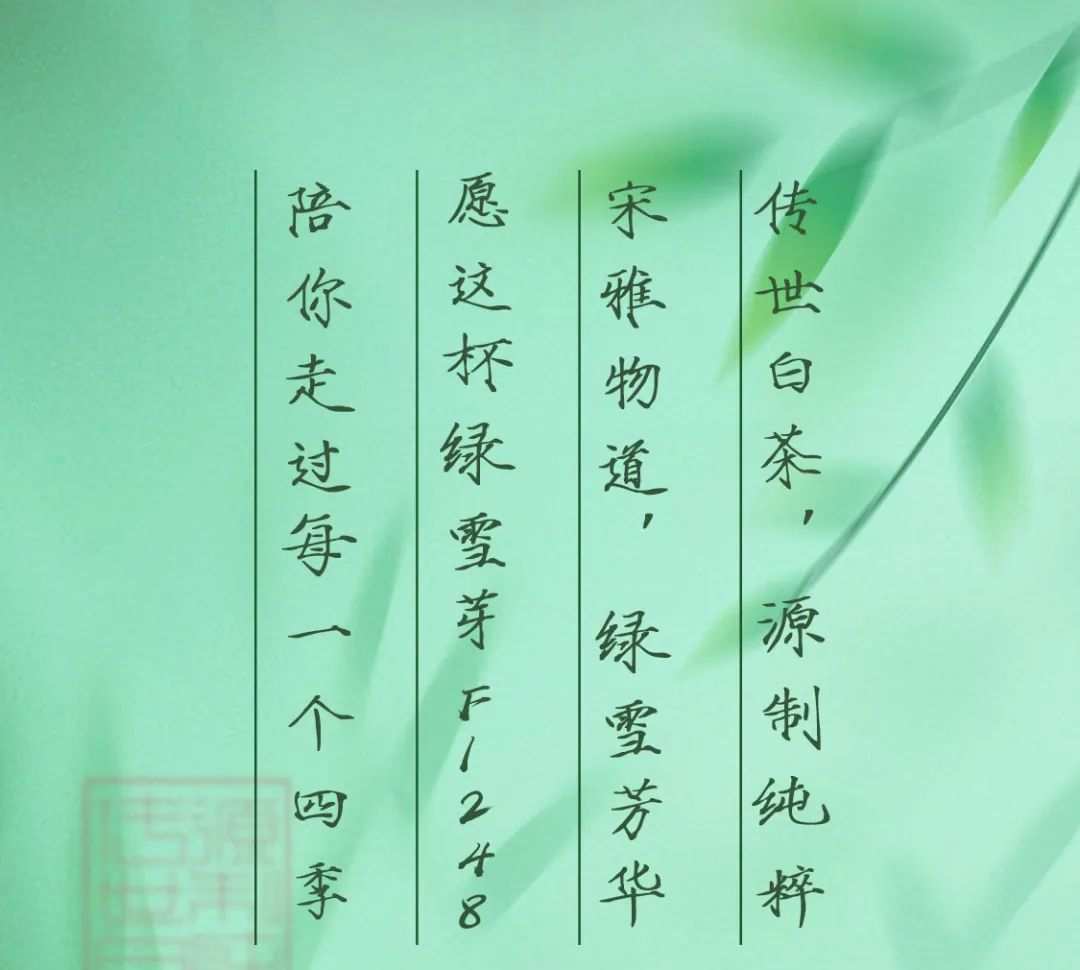 传世白茶，源制纯粹
宋雅物道，绿雪芳华
愿这杯绿雪芽F1248
陪你走过每一个四季
源制
传世